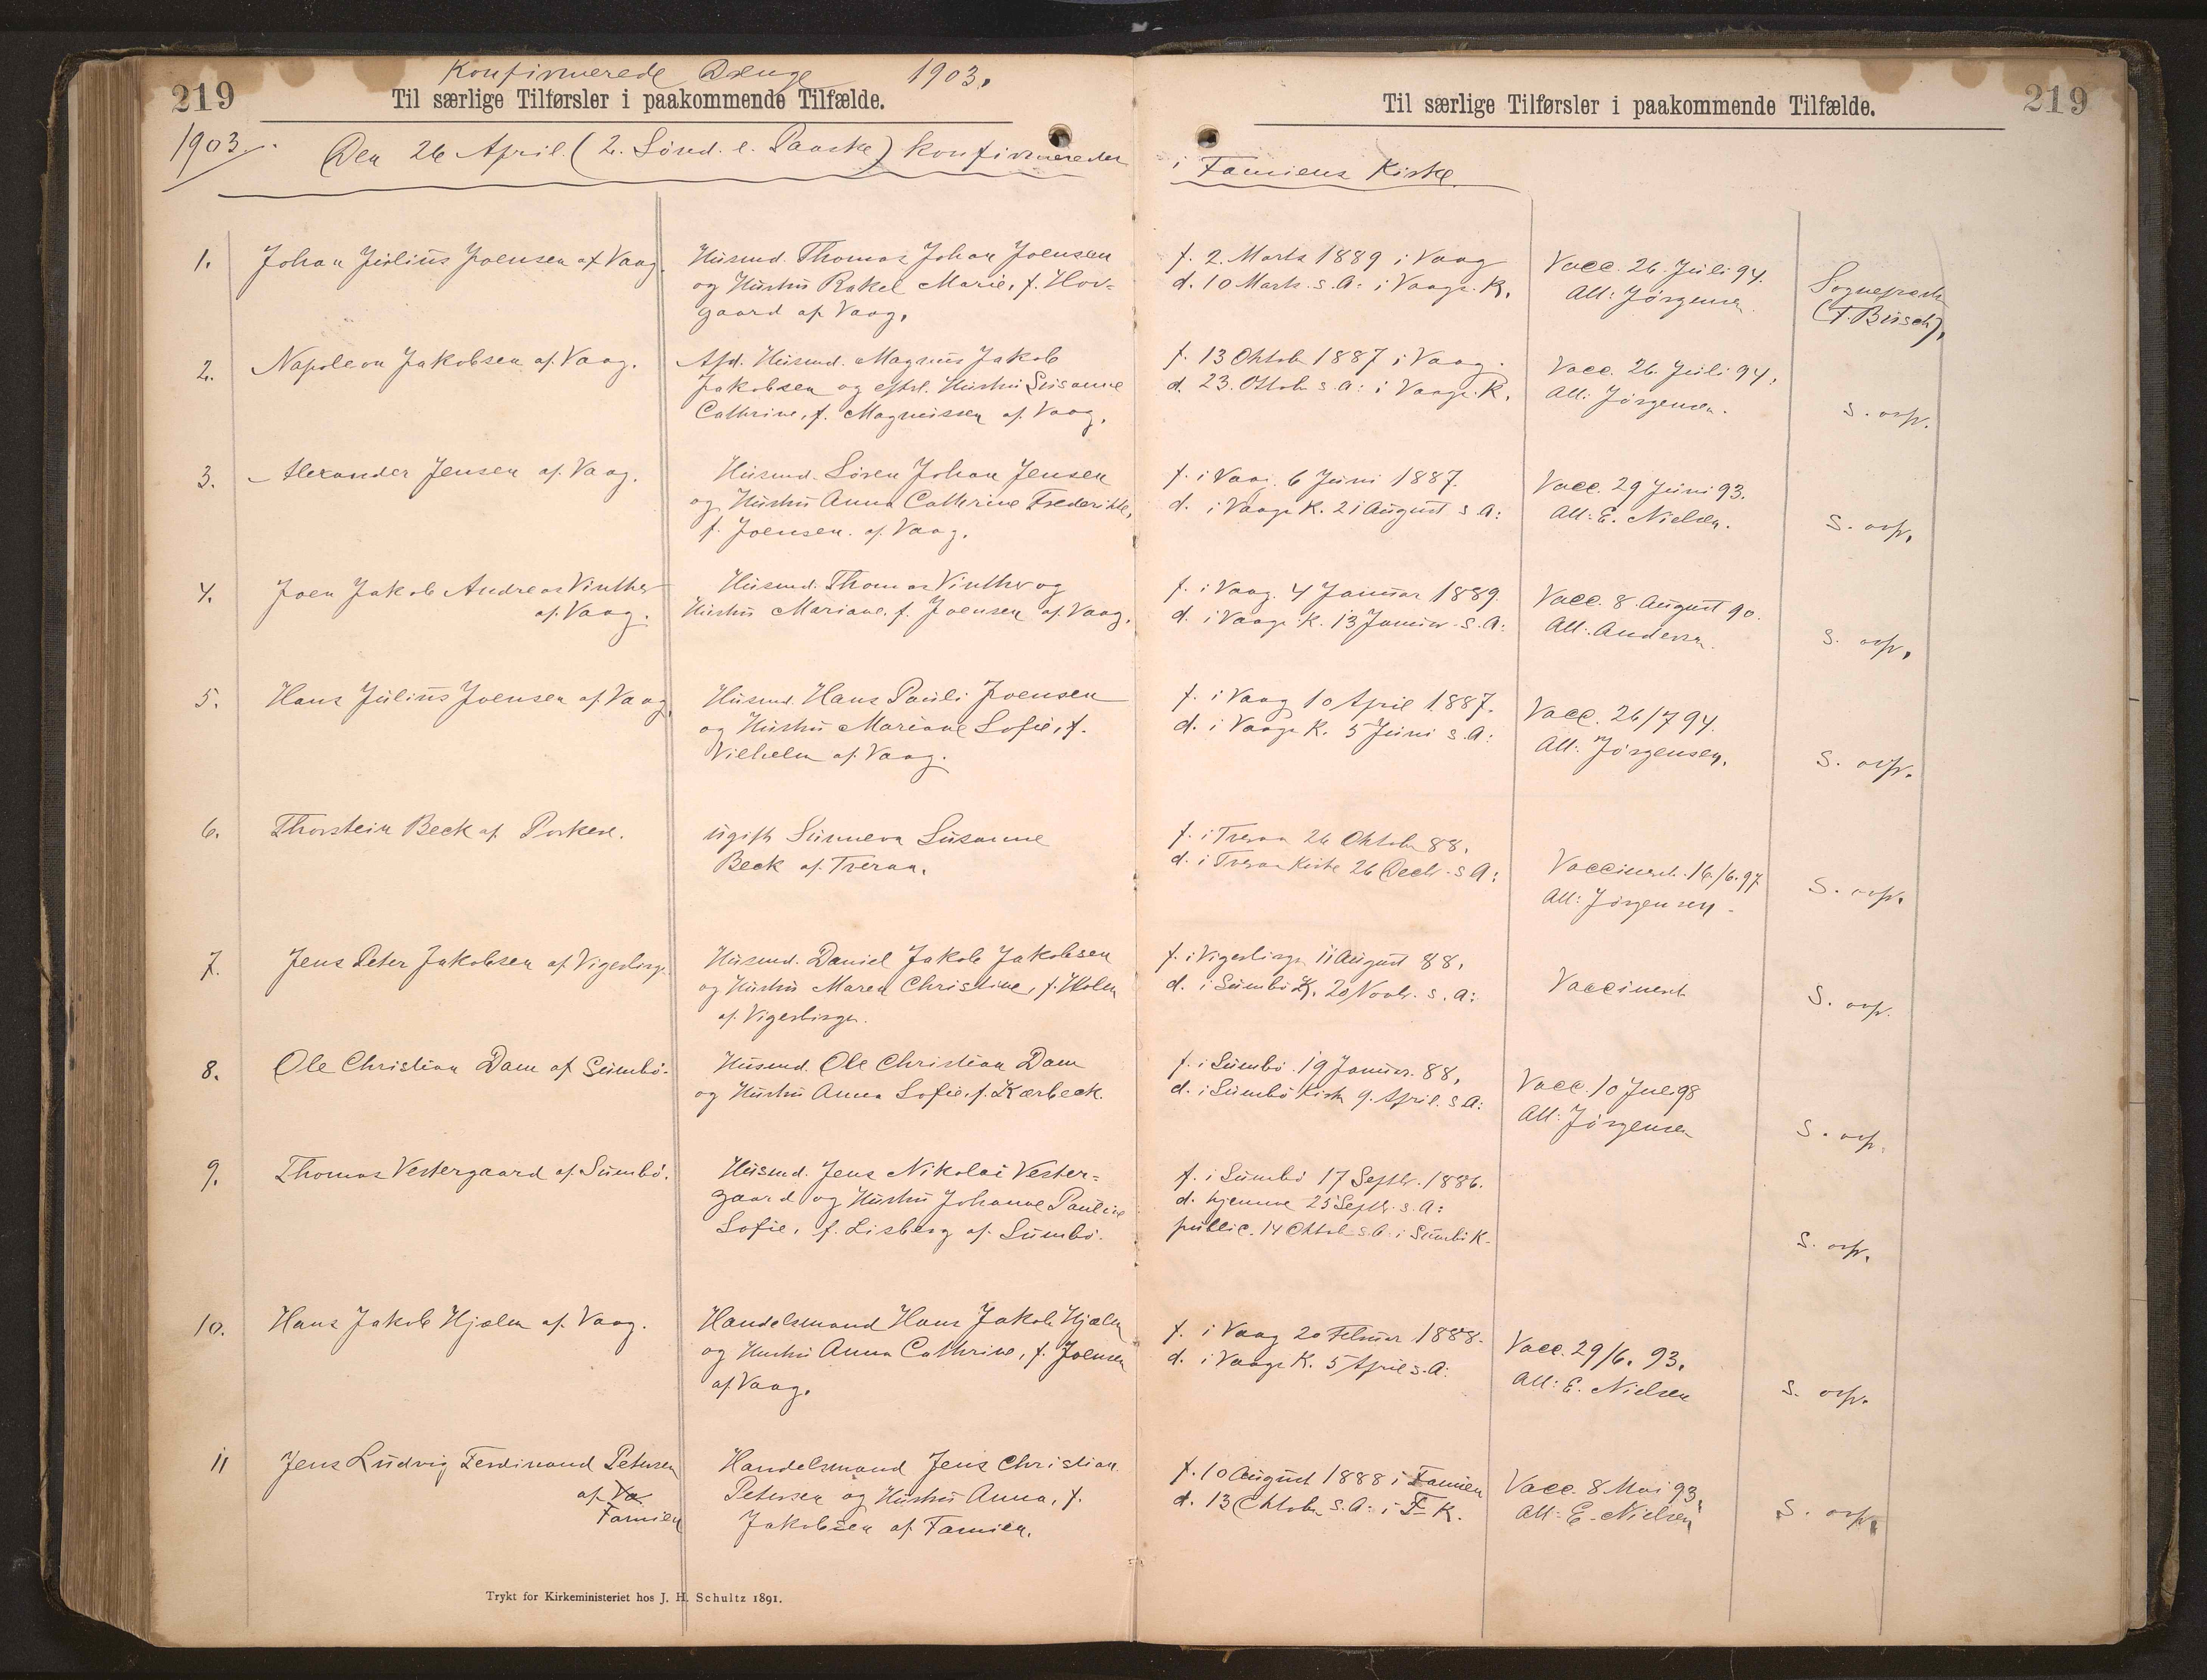 Konfirmerede Drenge 1903.
219
Til særlige Tilførsler i paakommende Tilfælde.
Til særlige Tilførsler i paakommende Tilfælde.
219
1903.
Den 26 April (2. Sönd. e. Paaske) konfirmeredes
i Famiens Kirke.
1.
Johan Julius Joensen af Vaag.
Husmd. Thomas Johan Joensen
og Hustru Rakel Marie, f. Hov-
gaard af Vaag.
f. 2. Marts 1889 i Vaag
d. 10 Marts s. A: i Vaags K.
Vacc. 26. Juli 94.
Att: Jörgensen
Sognepræst
(F. Busch),
2.
Napoleon Jakobsen af Vaag.
Afd. Husmd. Magnus Jakob
Jakobsen og efterl. Hustru Susanne
Cathrine, f. Magnussen af Vaag.
f. 13 Oktob 1887 i Vaag.
d. 23. Oktob s. A: i Vaags K.
Vacc. 26. Juli 94.
Att: Jörgensen.
S. ovfr.
3.
Alexander Jensen af Vaag.
Husmd. Sören Johan Jensen
og Hustru Anna Cathrine Frederikke,
f. Joensen af Vaag.
f. i Vaag 6 Juni 1887.
d. i Vaags K. 21 August s. A:
Vacc. 29 Juni 93.
Att: E. Nielsen.
S. ovfr.
4.
Joen Jakob Andreas Vinther
af Vaag.
Husmd. Thomas Vinther og
Hustru Mariane, f. Joensen af Vaag.
f. i Vaag. 4 Januar 1889
d. i Vaags K. 13 Januar s. A:
Vacc. 8. August 90.
Att: Andersen.
S. ovfr.
5.
Hans Julius Joensen af Vaag.
Husmd. Hans Pauli Joensen
og Hustru Mariane Sofie, f.
Vilhelm af Vaag.
f. i Vaag 10 April 1887.
d. i Vaags K. 5 Juni s. A:
Vacc. 26/7 94.
Att: Jörgensen.
S. ovfr.
6.
Thorstein Beck af Porkere.
ugift Sunneva Susanne
Beck af Treraa.
f. i Treraa 26 Oktob 88.
d. i Treraa Kirke 26 Decb. s A:
Vaccineret. 16./6. 97
Att: Jörgensen.
S. ovfr.
7.
Jens Peter Jakobsen af Vigerbirge
Husmd. Daniel Jakob Jakobsen
og Hustru Maren Christine, f. Holm
af Vigerbirge.
f. i Vigerbirge 11 August 88.
d. i Sumbö K. 20 Novb. s. A:
Vaccineret
S. ovfr.
8.
Ole Christian Dam af Sumbö.
Husmd. Ole Christian Dam
og Hustru Anna Sofie, f. Kærbeck.
f. i Sumbö 19 Januar. 88.
d. i Sumbö Kirke 9. April. s A:
Vacc. 10 Jul 98
Att: Jörgensen
S. ovfr.
9.
Thomas Vestergaard af Sumbö.
Husmd. Jens Nikolai Vester-
gaard og Hustru Johanne Pauline
Sofie, f. Lisberg af Sumbö.
f. i Sumbö 17 Septb. 1886.
d. hjemme 25 Septb. s. A:
public. 14 Oktob s. A. i Sumbö K.
S. ovfr.
10.
Hans Jakob Hjælm af Vaag.
Handelsmand Hans Jakob Hjælm
og Hustru Anna Cathrine, f. Joensen
af Vaag.
f. i Vaag 20 Februar 1888.
d. i Vaags K. 5 April s. A:
Vacc. 29/6. 93.
Att: E. Nielsen
S. ovfr.
11
Jens Ludvig Ferdinand Petersen
af Va
Famien
Handelsmand Jens Christian
Petersen og Hustru Anna, f.
Jakobsen af Famien.
f. 10 August 1888 i Famien
d. 13 Oktob s. A: i F K.
Vacc. 8 Mai 93.
Att: E. Nielsen
S. ovfr.
Trykt for Kirkeministeriet hos J. H. Schultz 1891.